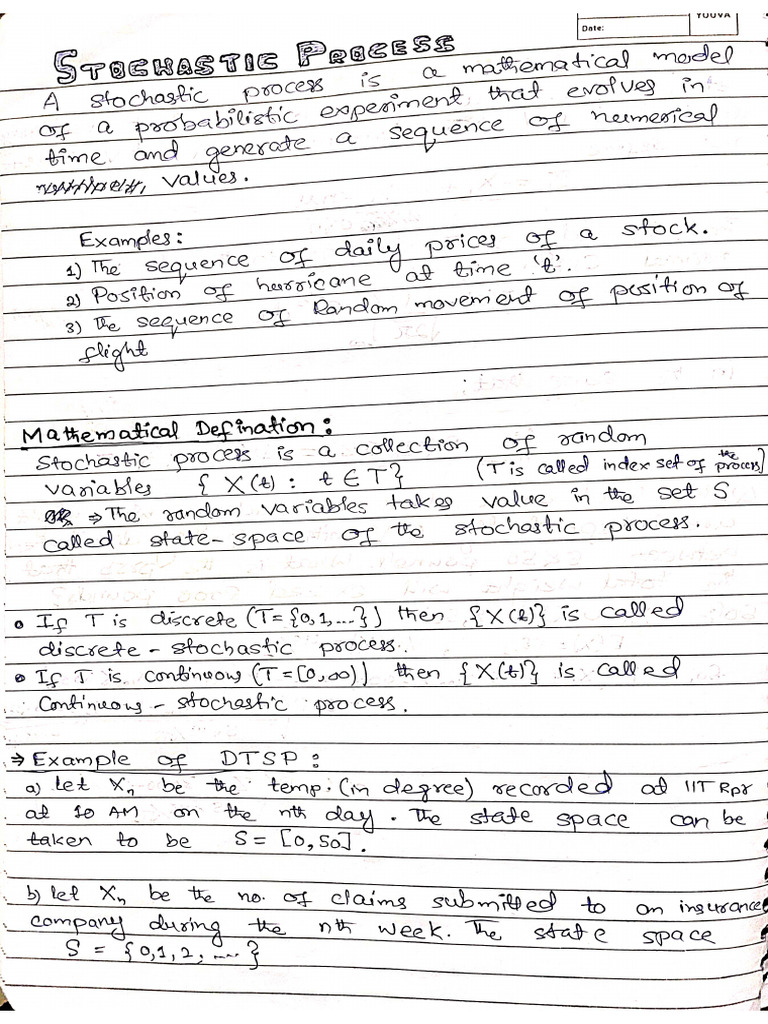 YOUVA
Date:
STOCHASTIC PROCESS
A stochastic process is a mathematical model
of a probabilistic experiment that evolves in
time and generate a sequence of numerical
values.
Examples:
1) The sequence of daily prices of a stock.
2) Position of hurricane at time 't'.
3) The sequence of Random movement of position of
flight
Mathematical Defination:
Stochastic process is a collection of random
variables { X(t) : t ∈ T} (T is called index set of the process)
⇒ The random variables takes value in the set S
called state-space of the stochastic process.
• If T is discrete (T = {0,1,...}) then {X(t)} is called
discrete - stochastic process.
• If T is continuous (T = [0,∞)) then {X(t)} is called
Continuous - stochastic process.
→ Example of DTSP:
a) let Xn be the temp. (in degree) recorded at IIT Rpr
at 10 AM on the nth day. The state space can be
taken to be S = [0, 50].
b) let Xn be the no. of claims submitted to an insurance
company during the nth week. The state space
S = {0,1,2, .... }